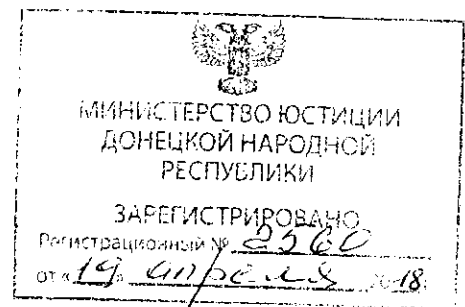 МИНИСТЕРСТВО ЮСТИЦИИ
ДОНЕЦКОЙ НАРОДНОЙ
РЕСПУБЛИКИ
ЗАРЕГИСТРИРОВАНО
Регистрационный № 2560
от «19» апреля 2018г.